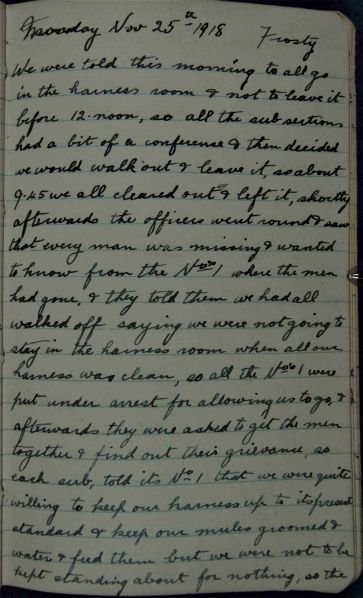 Monday Nov 25th 1918 Frosty
We were told this morning to all go
in the harness room & not to leave it
before 12. noon, so all the sub sections
had a bit of a conference & then decided
we would walk out & leave it, so about
9.45 we all cleared out & left it, shortly
afterwards the officers went round & saw
that every man was missing & wanted
to know from the Nos 1 where the men
had gone, & they told them we had all
walked off saying we were not going to
stay in the harness room when all our
harness was clean, so all the Nos 1 were
put under arrest for allowing us to go, &
afterwards they were asked to get the men
together & find out their grievance, so
each sub, told its No 1 that we were quite
willing to keep our harness up to its present
standard & keep our mules groomed &
water & feed them but we were not to be
kept standing about for nothing, so the